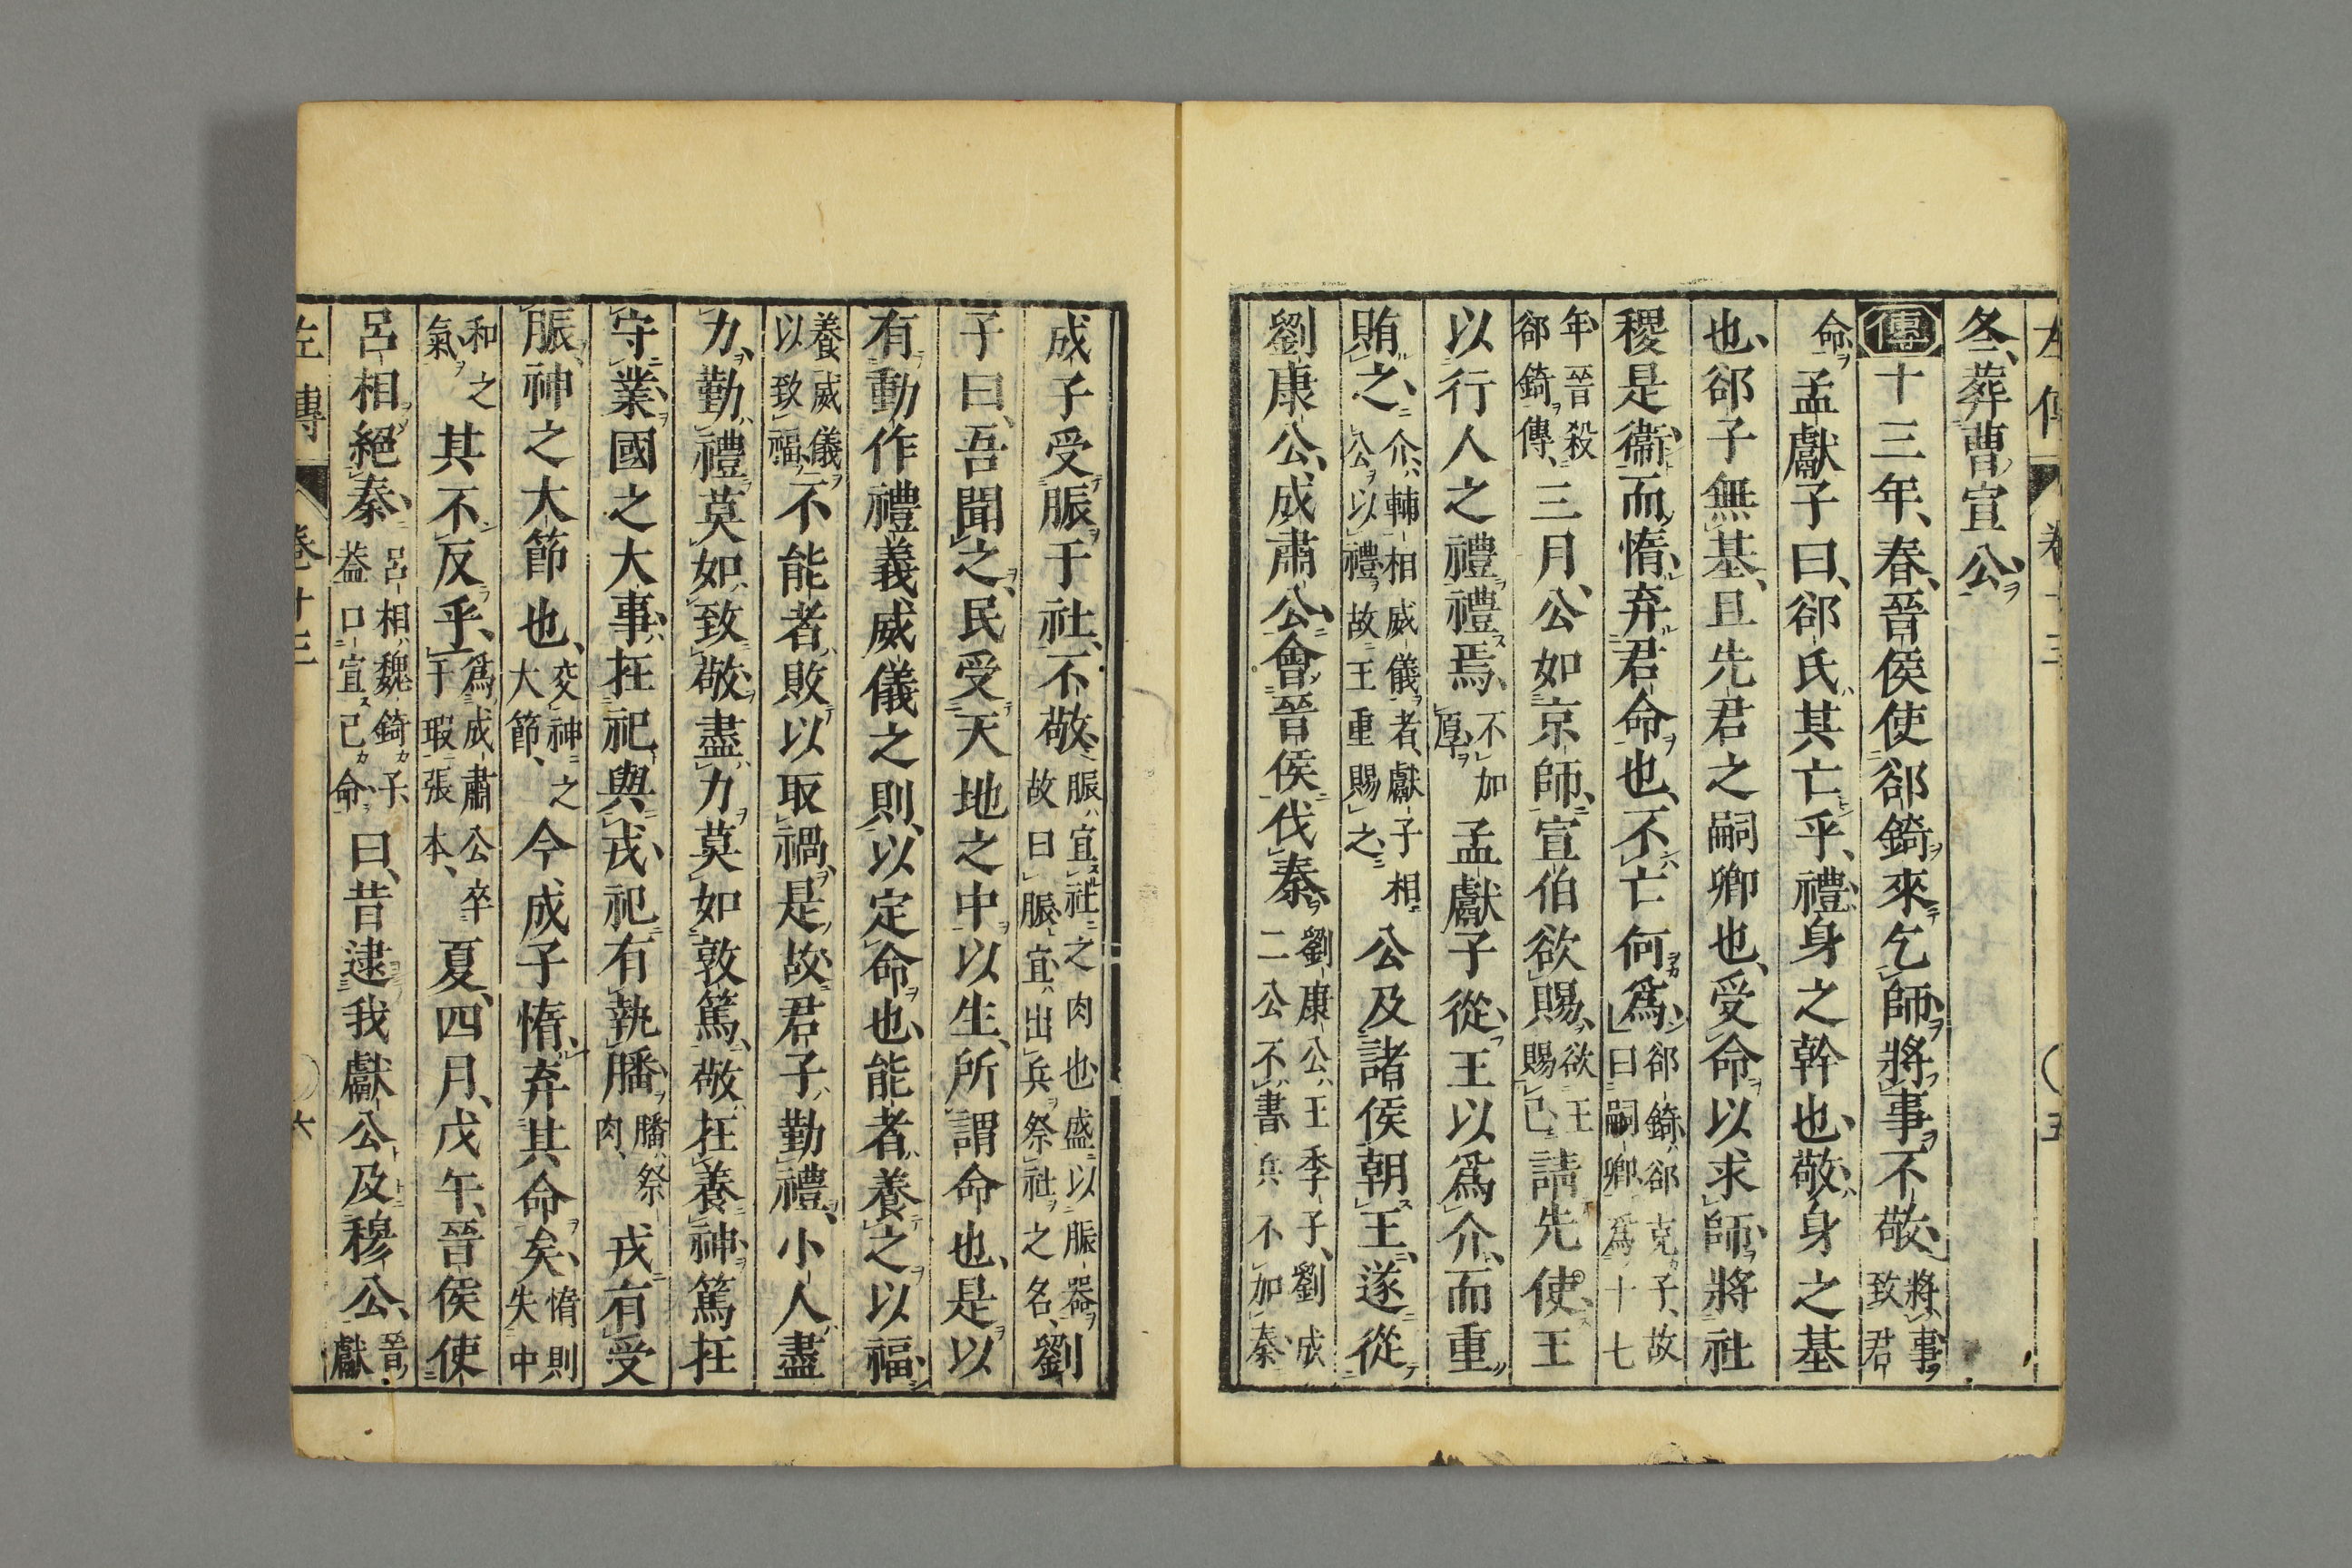 冬、葬曹宣公、
傳十三年、春、晉侯使郤錡來乞師、將事不敬、將事致君
命、孟獻子曰、郤氏其亡乎、禮、身之幹也、敬、身之基
也、郤子無基、且先君之嗣卿也、受命以求師、將社
稷是衞、而惰、弃君命也、不亡何爲、郤錡郤克子、故曰嗣卿、爲十七
年、晉殺郤錡傳、三月、公如京師、宣伯欲賜、欲王賜己、請先使、王
以行人之禮禮焉、不加厚、孟獻子從、王以爲介、而重
賄之、介、輔相威儀者、獻子相公以禮、故王重賜之、公及諸侯朝王、遂從
劉康公、成肅公、會晉侯伐秦、劉康公、王季子、劉成二公不書、兵不加秦、
成子受脤于社、不敬、脤、宜社之肉也、盛以脤器、故曰脤、宜、出兵祭社之名、劉
子曰、吾聞之、民受天地之中以生、所謂命也、是以
有動作禮義威儀之則、以定命也、能者、養之以福、
養威儀以致福、不能者、敗以取禍、是故君子勤禮、小人盡
力、勤禮莫如致敬、盡力莫如敦篤、敬在養神、篤在
守業、國之大事、在祀與戎、祀有執膰、膰、祭肉、戎有受
脤、神之大節也、交神之大節、今成子惰、弃其命矣、惰則失中
和之氣、其不反乎、爲成肅公卒于瑕張本、夏、四月、戊午、晉侯使
呂相絕秦、呂相、魏錡子、葢口宣己命、曰、昔逮我獻公、及穆公、晉獻
左傳 卷十三 六